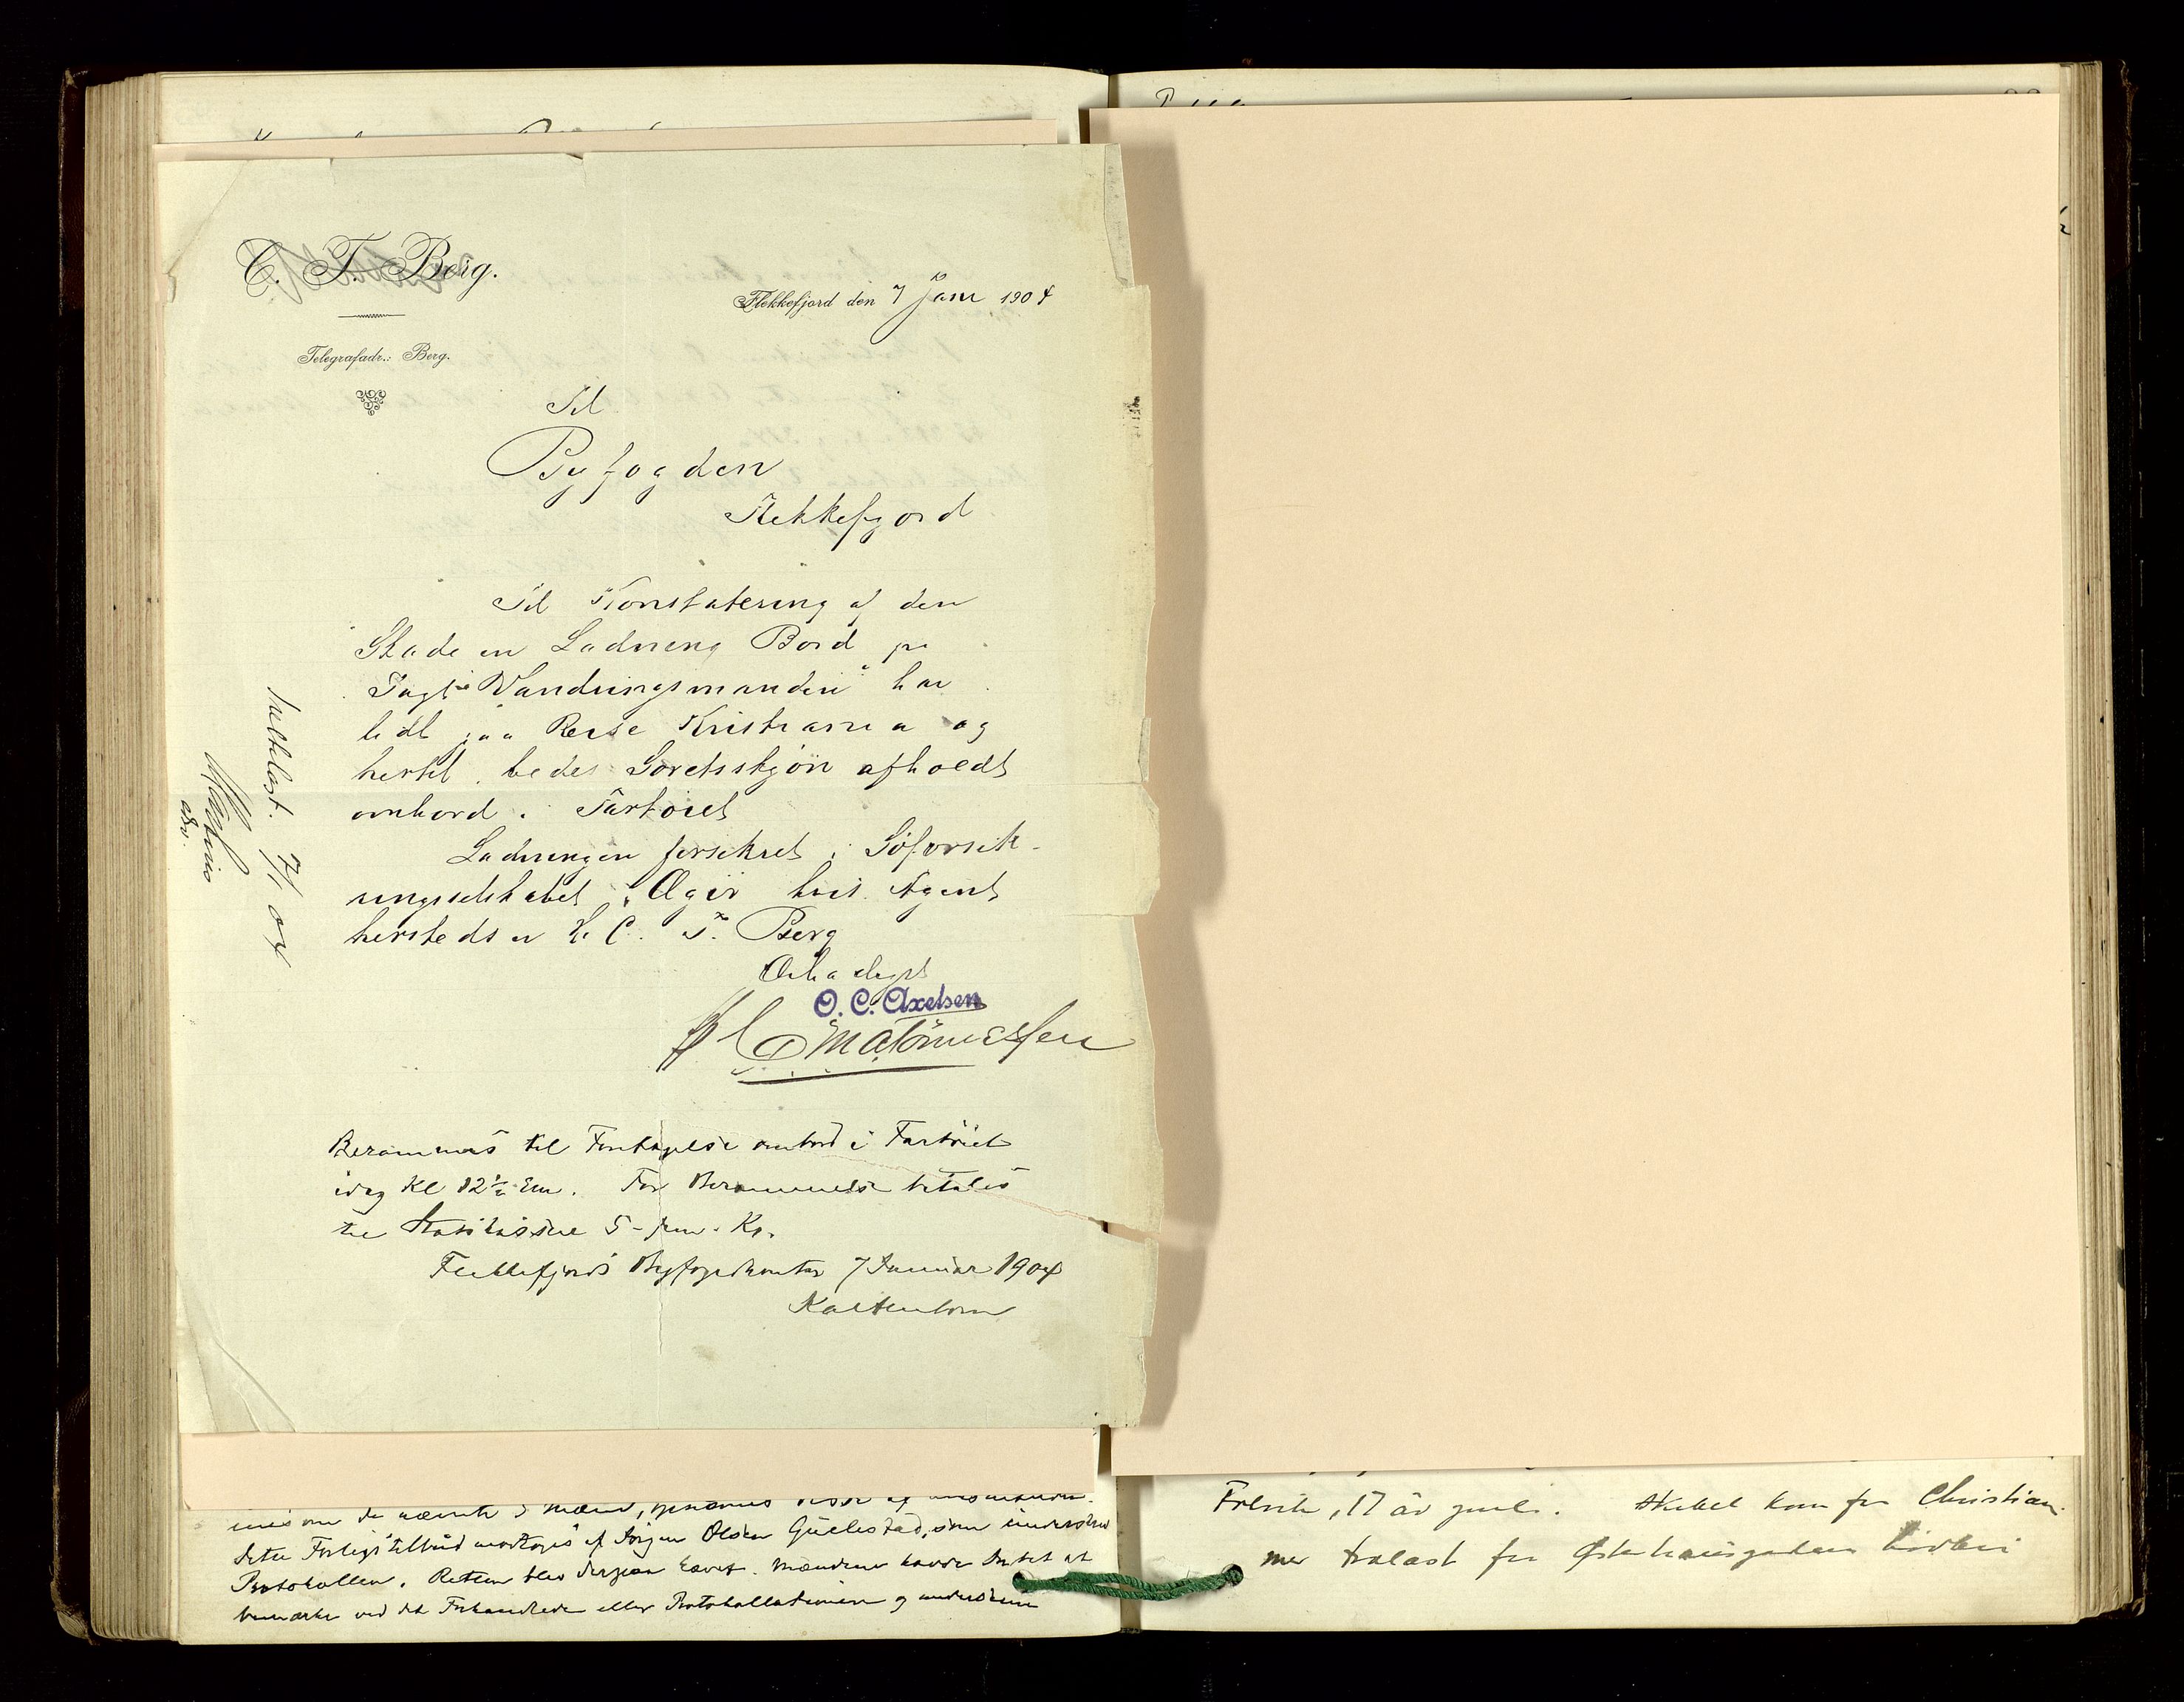 C. T. Berg.
Flekkefjord den 7 Janr 1904
Telegrafadr.: Berg.
Til
Byfogden
Flekkefjord
Til Konstatering af den
Skade en Ladning Bord pr
Jagt "Vandringsmanden" har
lidt paa Reise Kristiania og
hertil, bedes Söretsskjön afholdt
ombord i Fartöiet
Ladningen forsikret i Söforsik-
ringsselskabet "Ægir hvis Agent
hersteds er Hr C. T. Berg
Ærbødigst
O. C. Axelsen
7/1 04
Berammes til Foretagelse ombord i Fartöiet
idag Kl 12½ Em. For Berammelse betales
til Statskassen 5 - fem - Kr.
Flekkefjords Byfogedkontor 7 Januar 1904
Kaltenborn
dette Forligstilbud modtoges af Jörgen Olsen Gullestad, som underskrev
Protokollen. Retten blev derpaa hævet. Mændene havde Intet at
bemærke ved det Forhandlede eller Protokollationen og underskrev
17 år gml. Skibet kom fra Christian-
med trælast fra